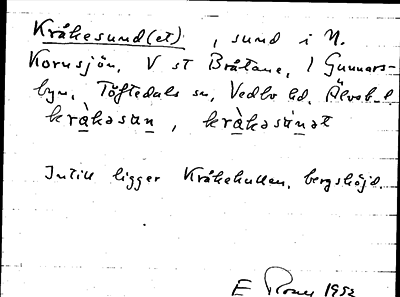 Kråkesund(et), sund i N.
Kornsjön, V st Bråtane, i Gunnars-
byn, Töftedals sn, Vedbo hd, Älvsb. l.
kràkəsun, kràkəsunət
Intill ligger Kråkekullen, bergshöjd.
E 1952